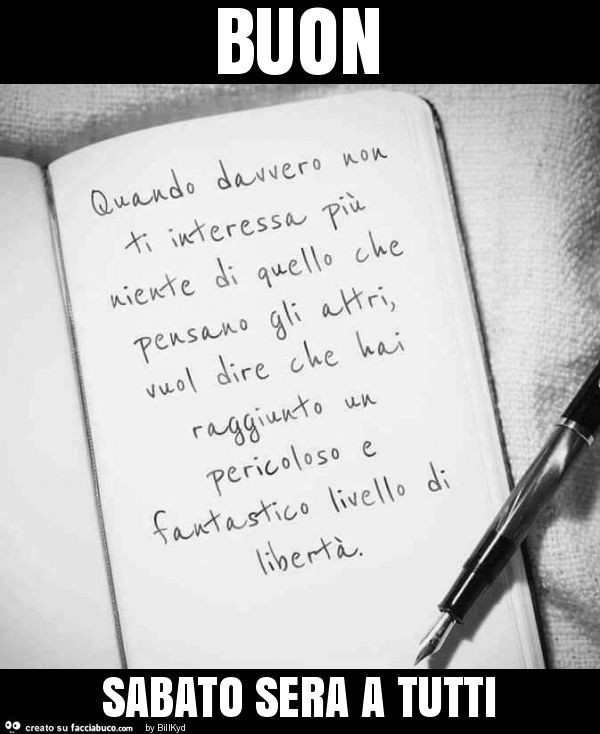 BUON
Quando davvero non
ti interessa più
niente di quello che
pensano gli altri,
vuol dire che hai
raggiunto un
pericoloso e
fantastico livello di
libertà.
SABATO SERA A TUTTI
creato su facciabuco.com by BillKyd